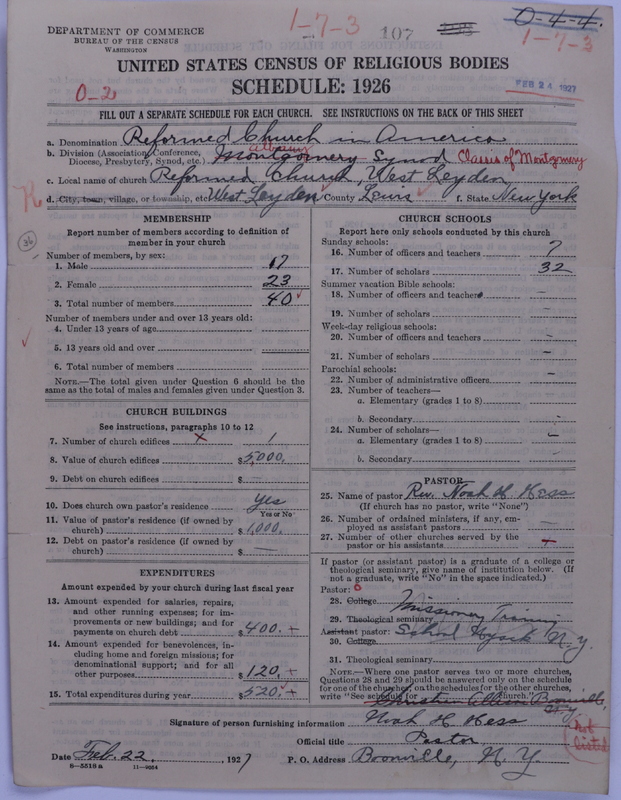 DEPARTMENT OF COMMERCE
BUREAU OF THE CENSUS
WASHINGTON
1-7-3
107
0-4-4
1-7-3
UNITED STATES CENSUS OF RELIGIOUS BODIES
SCHEDULE: 1926
0-2
FEB 24 1927
FILL OUT A SEPARATE SCHEDULE FOR EACH CHURCH. SEE INSTRUCTIONS ON THE BACK OF THIS SHEET
a. Denomination Reformed Church in America
b. Division (Association, Conference, Diocese, Presbytery, Synod, etc.) Montgomery Albany Synod Classis of Montgomery
c. Local name of church Reformed Church, West Leyden
d. City, town, village, or township, etc. West Leyden County Lewis f. State New York
36
MEMBERSHIP
Report number of members according to definition of
member in your church
Number of members, by sex:
1. Male 17
2. Female 23
3. Total number of members 40
Number of members under and over 13 years old:
4. Under 13 years of age
5. 13 years old and over
6. Total number of members
NOTE.—The total given under Question 6 should be the
same as the total of males and females given under Question 3.
CHURCH BUILDINGS
See instructions, paragraphs 10 to 12
7. Number of church edifices x 1
8. Value of church edifices $5,000.
9. Debt on church edifices $ —
10. Does church own pastor's residence Yes
Yes or No
11. Value of pastor's residence (if owned by
church) $1,000.
12. Debt on pastor's residence (if owned by
church) $ —
EXPENDITURES
Amount expended by your church during last fiscal year
13. Amount expended for salaries, repairs,
and other running expenses; for im-
provements or new buildings; and for
payments on church debt $400. +
14. Amount expended for benevolences, in-
cluding home and foreign missions; for
denominational support; and for all
other purposes $120. +
15. Total expenditures during year $520. +
CHURCH SCHOOLS
Report here only schools conducted by this church
Sunday schools:
16. Number of officers and teachers 7
17. Number of scholars 32
Summer vacation Bible schools:
18. Number of officers and teachers —
19. Number of scholars —
Week-day religious schools:
20. Number of officers and teachers —
21. Number of scholars —
Parochial schools:
22. Number of administrative officers —
23. Number of teachers—
a. Elementary (grades 1 to 8) —
b. Secondary —
24. Number of scholars—
a. Elementary (grades 1 to 8) —
b. Secondary —
PASTOR
25. Name of pastor Rev. Noah H. Hess
(If church has no pastor, write "None")
26. Number of ordained ministers, if any, em-
ployed as assistant pastors —
27. Number of other churches served by the
pastor or his assistants +
If pastor (or assistant pastor) is a graduate of a college or
theological seminary, give name of institution below. (If
not a graduate, write "No" in the space indicated.)
Pastor:
28. College Missionary Training
29. Theological seminary
Assistant pastor: School Nyack N. Y.
30. College
31. Theological seminary
NOTE.—Where one pastor serves two or more churches,
Questions 28 and 29 should be answered only on the schedule
for one of the churches, on the schedules for the other churches,
write "See schedule for Christian Alliance Boonville, N.Y. Church."
Signature of person furnishing information Noah H. Hess
Official title Pastor
not
listed
Date Feb. 22. 1927 P. O. Address Boonville, N. Y.
8-5518 a 11-9054